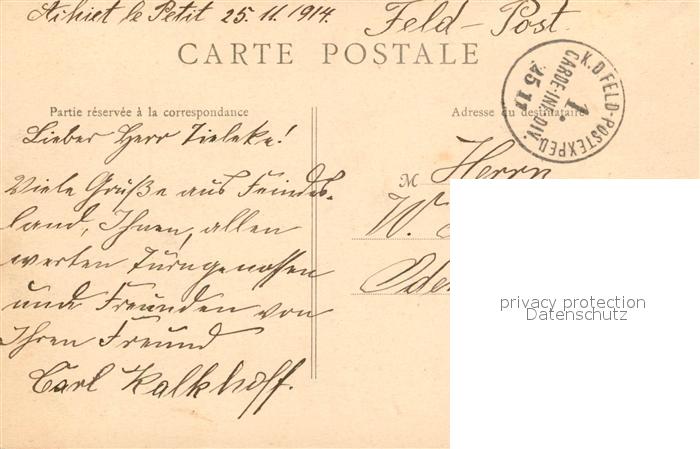 Achiet le Petit 25.11.1914.
Feld-Post.
CARTE POSTALE
K.D FELD-POSTEXPED.
GARDE-INF.DIV.
1.
25 11
Partie réservée à la correspondance
Adresse du destinataire
Lieber Herr Tieleke!
Viele Grüße aus Feindes-
land, Ihnen, allen
werten Turngenossen
und Freunden von
Ihren Freund
Carl Kalkhoff.
M Herrn
W.
privacy protection
Datenschutz